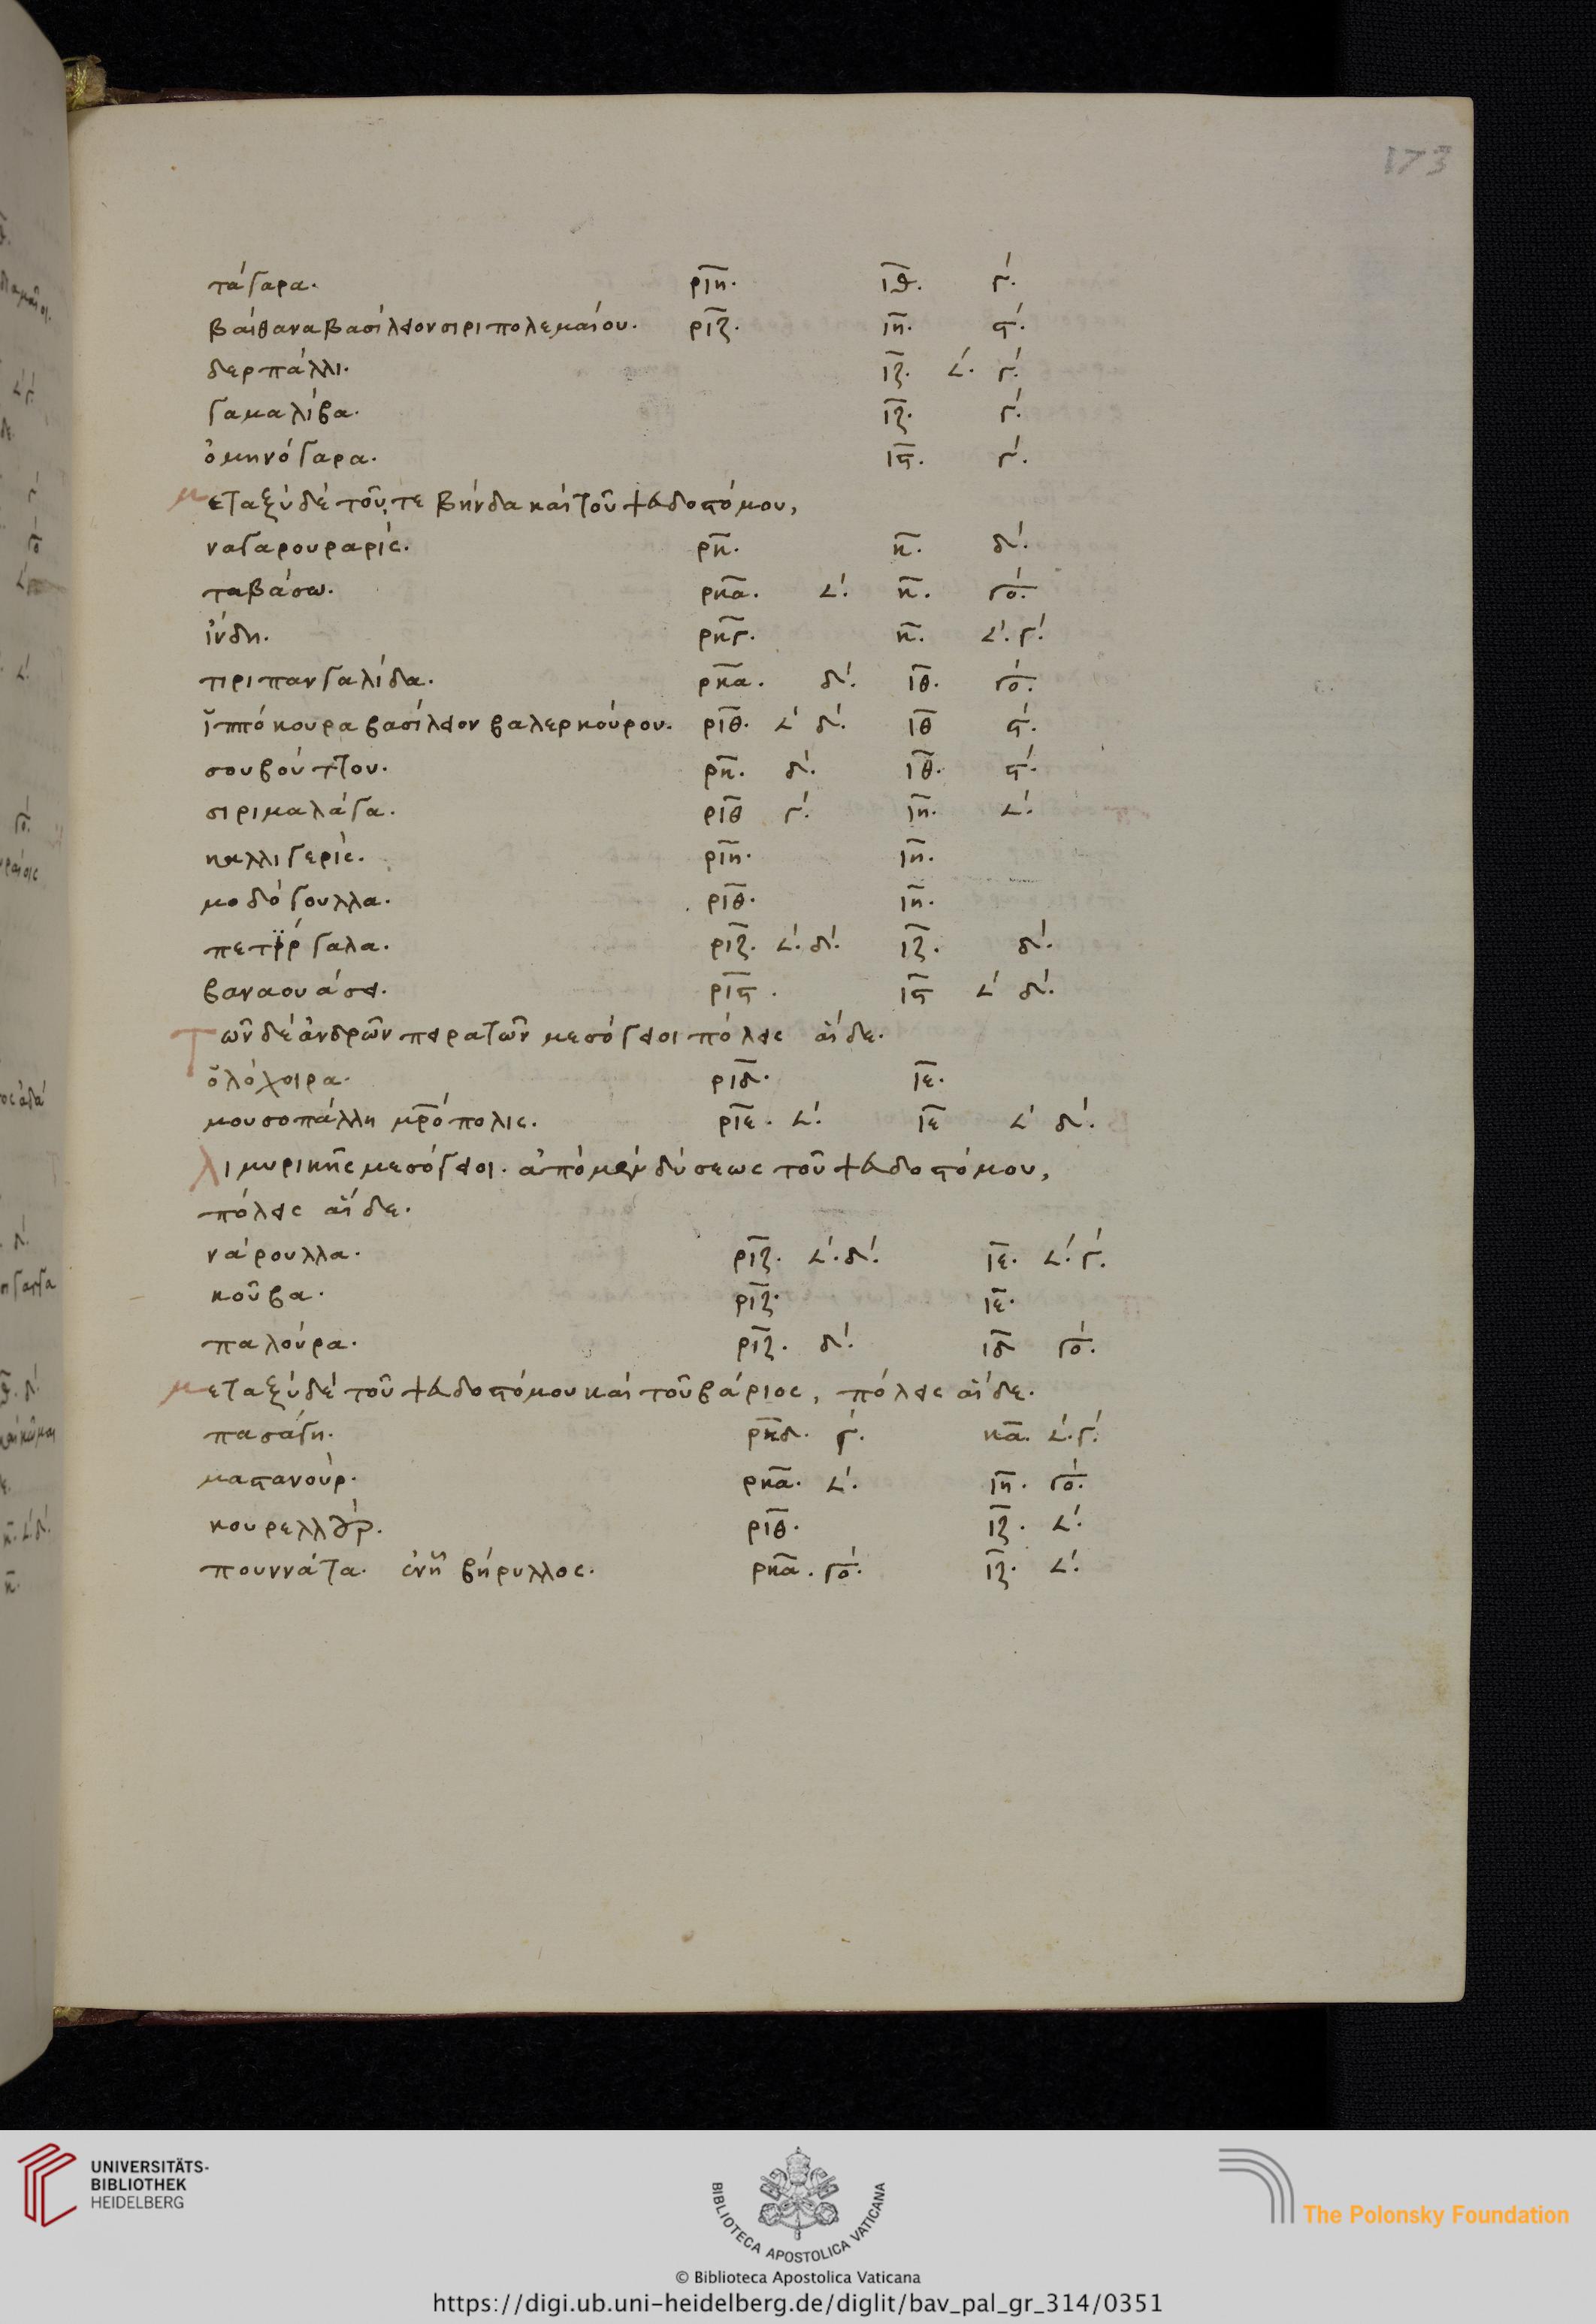 173
τάγαρα. ριη. ιθ. γ΄.
βαίθανα βασίλειον σιριπολεμαίου. ριζ. ιη. ϛ΄.
δερπάλλι. ιζ. 𐅵. γ΄.
γαμαλίβα. ιζ. γ΄.
ὀμηνόγαρα. ιϛ. γ΄.
μεταξὺ δὲ τοῦ, τε βήνδα καὶ τοῦ ψευδοστόμου,
ναγαρουραρίς. ρκ. κ. δ΄.
ταβάσω. ρκα. 𐅵. κ. γο΄.
ἴνδη. ρκγ. κ. 𐅵. γ΄.
τιριπανγαλίδα. ρκα. δ΄. ιθ. γο΄.
ἵππόκουρα βασίλειον βαλερκούρου. ριθ. 𐅵 δ΄. ιθ ϛ΄.
σουβούττου. ρκ. δ΄. ιθ. ϛ΄.
σιριμαλάγα. ριθ γ΄. ιη. 𐅵.
καλλιγερίς. ριη. ιη.
μοδόγουλλα. ριθ. ιη.
ριζ. 𐅵. δ΄. ιζ. δ΄.
βαναουάσει. ριϛ. ιϛ 𐅵 δ΄.
τῶν δὲ ἀνδρῶν πειρατῶν μεσόγειοι πόλεις αἵδε.
ὀλόχοιρα. ριδ. ιε.
μουσοπάλλη μρόπολις. ριε. 𐅵. ιε 𐅵 δ΄.
λιμυρικῆς μεσόγειοι. ἀπὸ μὲν δύσεως τοῦ ψευδοστόμου,
πόλεις αἵδε.
νάρουλλα. ριζ. 𐅵. δ΄. ιε. 𐅵. γ΄.
κοῦβα. ριζ. ιε.
παλούρα. ριζ. δ΄. ιδ γο΄.
μεταξὺ δὲ τοῦ ψευδοστόμου καὶ τοῦ βάριος, πόλεις αἵδε.
πασάγη. ρκδ. γ΄. κα. 𐅵. γ΄.
μαστανούρ. ρκα. 𐅵. ιη. γο΄.
κουρελλούρ. ριθ. ιζ. 𐅵.
πουννάτα. ἐν ᾗ βήρυλλος. ρκα. γο΄. ιζ. 𐅵.
UNIVERSITÄTS-
BIBLIOTHEK
HEIDELBERG
BIBLIOTECA APOSTOLICA VATICANA
The Polonsky Foundation
© Biblioteca Apostolica Vaticana
https://digi.ub.uni-heidelberg.de/diglit/bav_pal_gr_314/0351